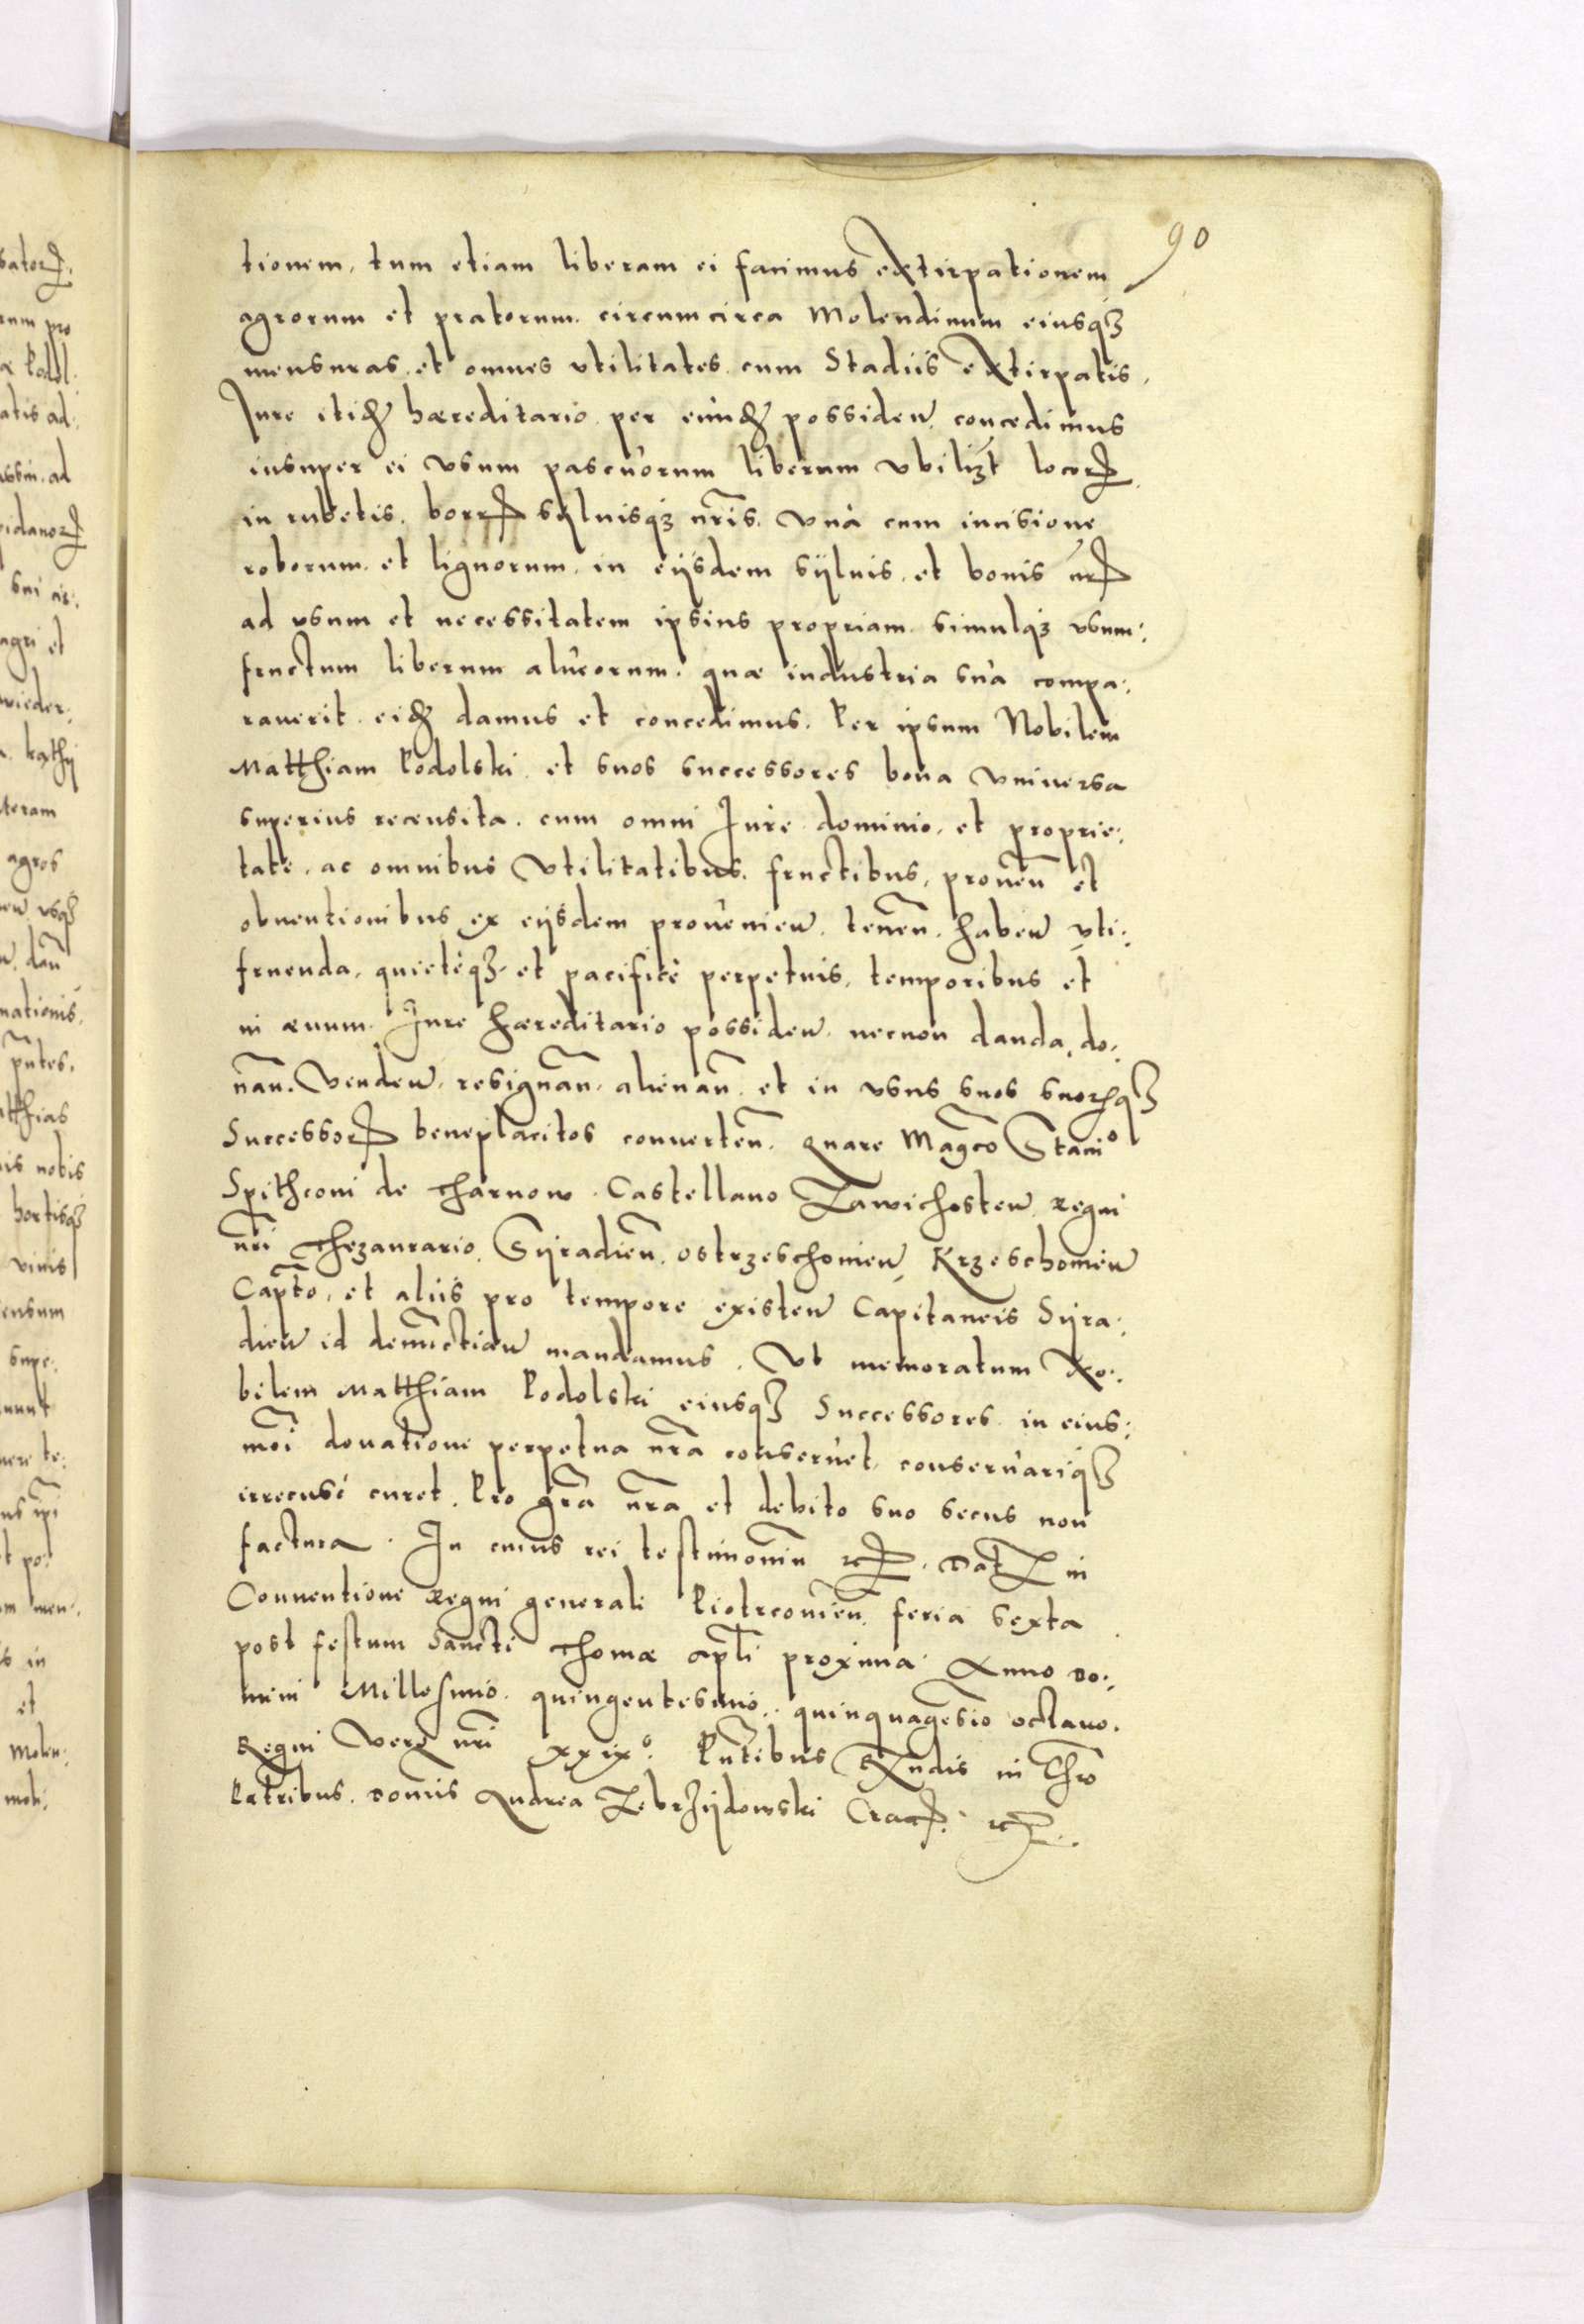 90
tionem, tum etiam liberam ei facimus extirpationem
agrorum et pratorum circumcirca Molendinum eiusqꝫ
mensuras, et omnes vtilitates cum Stadiis extirpatis,
Jure itidẽ hæreditario per eundẽ possideñ. concedimus
insuper ei vsum pascuorum liberum vbilibꝫt locorꝝ
in rubetis, borrꝭ sylvisqꝫ nr̃is. Vnà cum incisione
roborum et lignorum in eijsdem syluis, et bonis nr̃ꝭ
ad vsum et necessitatem ipsius propriam simulqꝫ vsum:
fructum liberum alueorum, quæ industria suà compa:
rauerit eidẽ damus et concedimus. Per ipsum Nobilem
Matthiam Podolski et suos successores bona vniuersa
superius recensita, cum omni Jure dominio, et proprie:
tate, ac omnibus Vtilitatibus, fructibus, prouen̄ et
obuentionibus ex eijsdem prouenieñ. tenen̄. habeñ vti:
fruenda, quietéqꝫ et pacificè perpetuis temporibus et
in æuum Jure hæreditario possideñ. necnon danda, do:
nan̄. Vendeñ. resignan̄. alienan̄. et in vsus suos suorꝝqꝫ
Successorꝝ beneplacitos conuerten̄. Quare Mag̃co Stanio
Spithconi de Tharnow. Castellano Zawichosteñ. Regni
nr̃i Thezaurario, Syradien̄. Ostrzeschouieñ, Krzeschouieñ
Capt̃o, et aliis pro tempore existeñ Capitaneis Syra:
dieñ id denunctiañ mandamus, Vt memoratum No:
bilem Matthiam Podolski eiusqꝫ Successores in eius:
mõi donatione perpetua nr̃a conseruet, conseruariqꝫ
irrecusè curet. Pro gr̃a nr̃a et debito suo secus non
factura. In cuius rei testimoniũ ꝛcꝭ. Datꝭ in
Conuentione Regni generali Piotrcouien̄. feria sexta
post festum Sancti Thomæ apl̃i proxima Anno Do:
mini Millesimo quingentesimo quinquagesĩo octauo.
Regni Vero nr̃i xxixº. Pñtibus Rñdis in Chr̃o
Patribus. Domĩs Andrea Zebrzijdowski Cracꝭ. ꝛcꝭ.